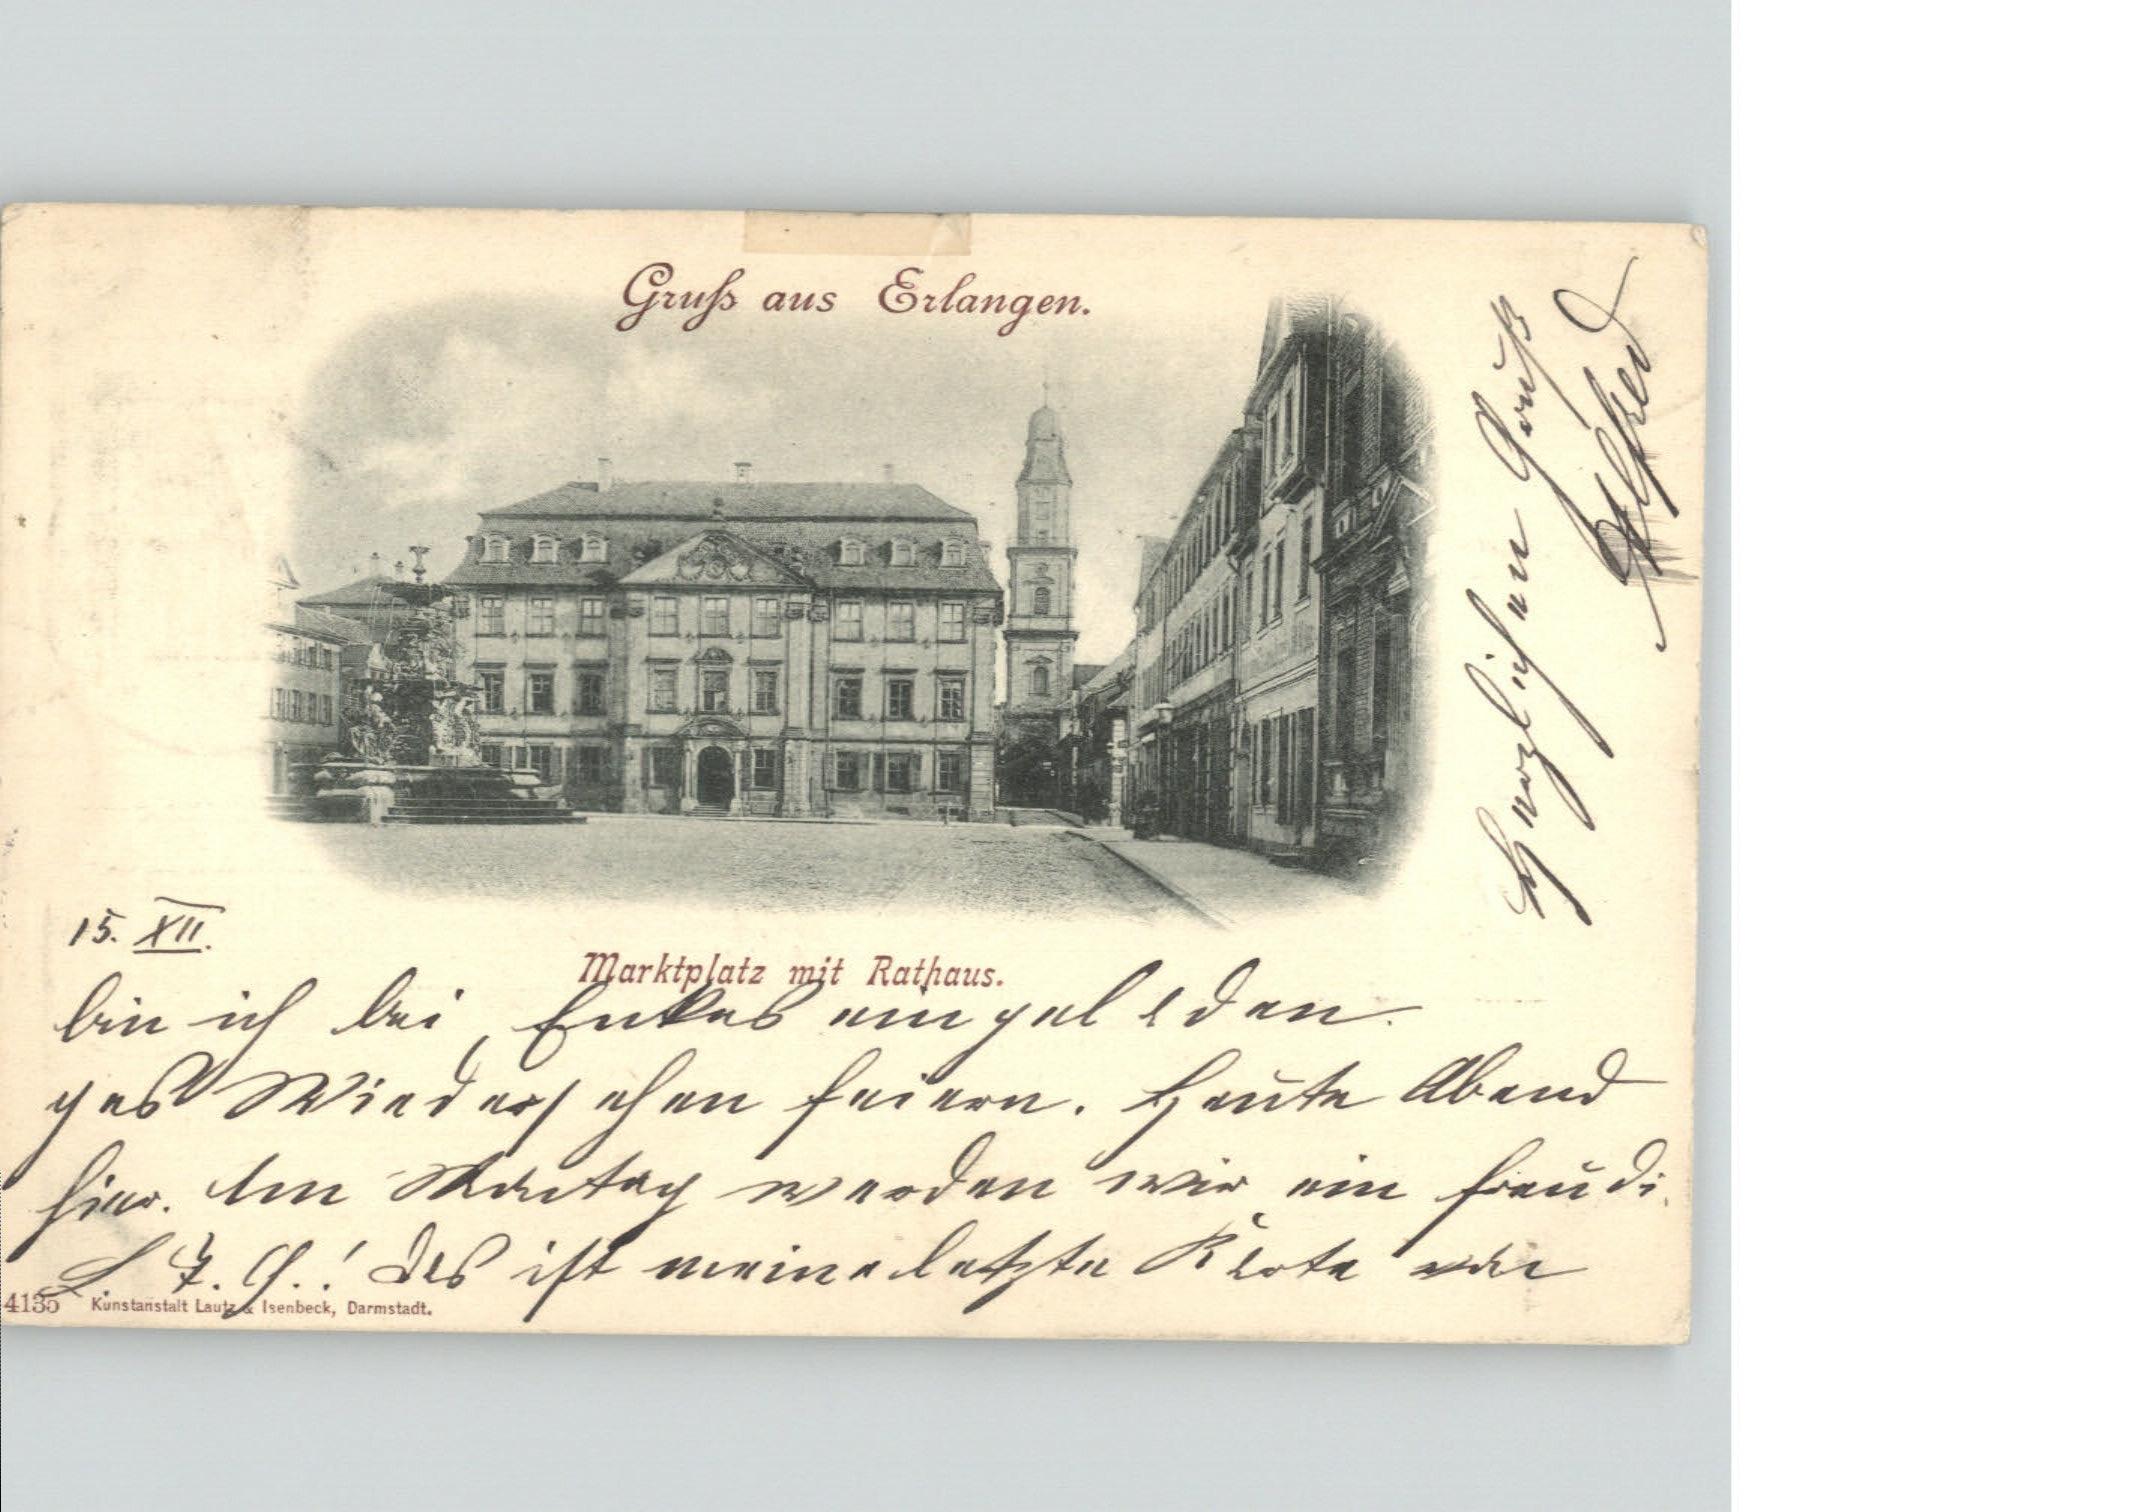 Gruß aus Erlangen.
Marktplatz mit Rathaus.
15. XII.
Das ist meine letzte Karte von
hier. Am Montag werden wir ein freudi-
ges Wiedersehen feiern. Heute Abend
bin ich bei Enkes eingeladen.
Herzlichen Gruß
Alfred
4135 Kunstanstalt Lautz & Isenbeck, Darmstadt.